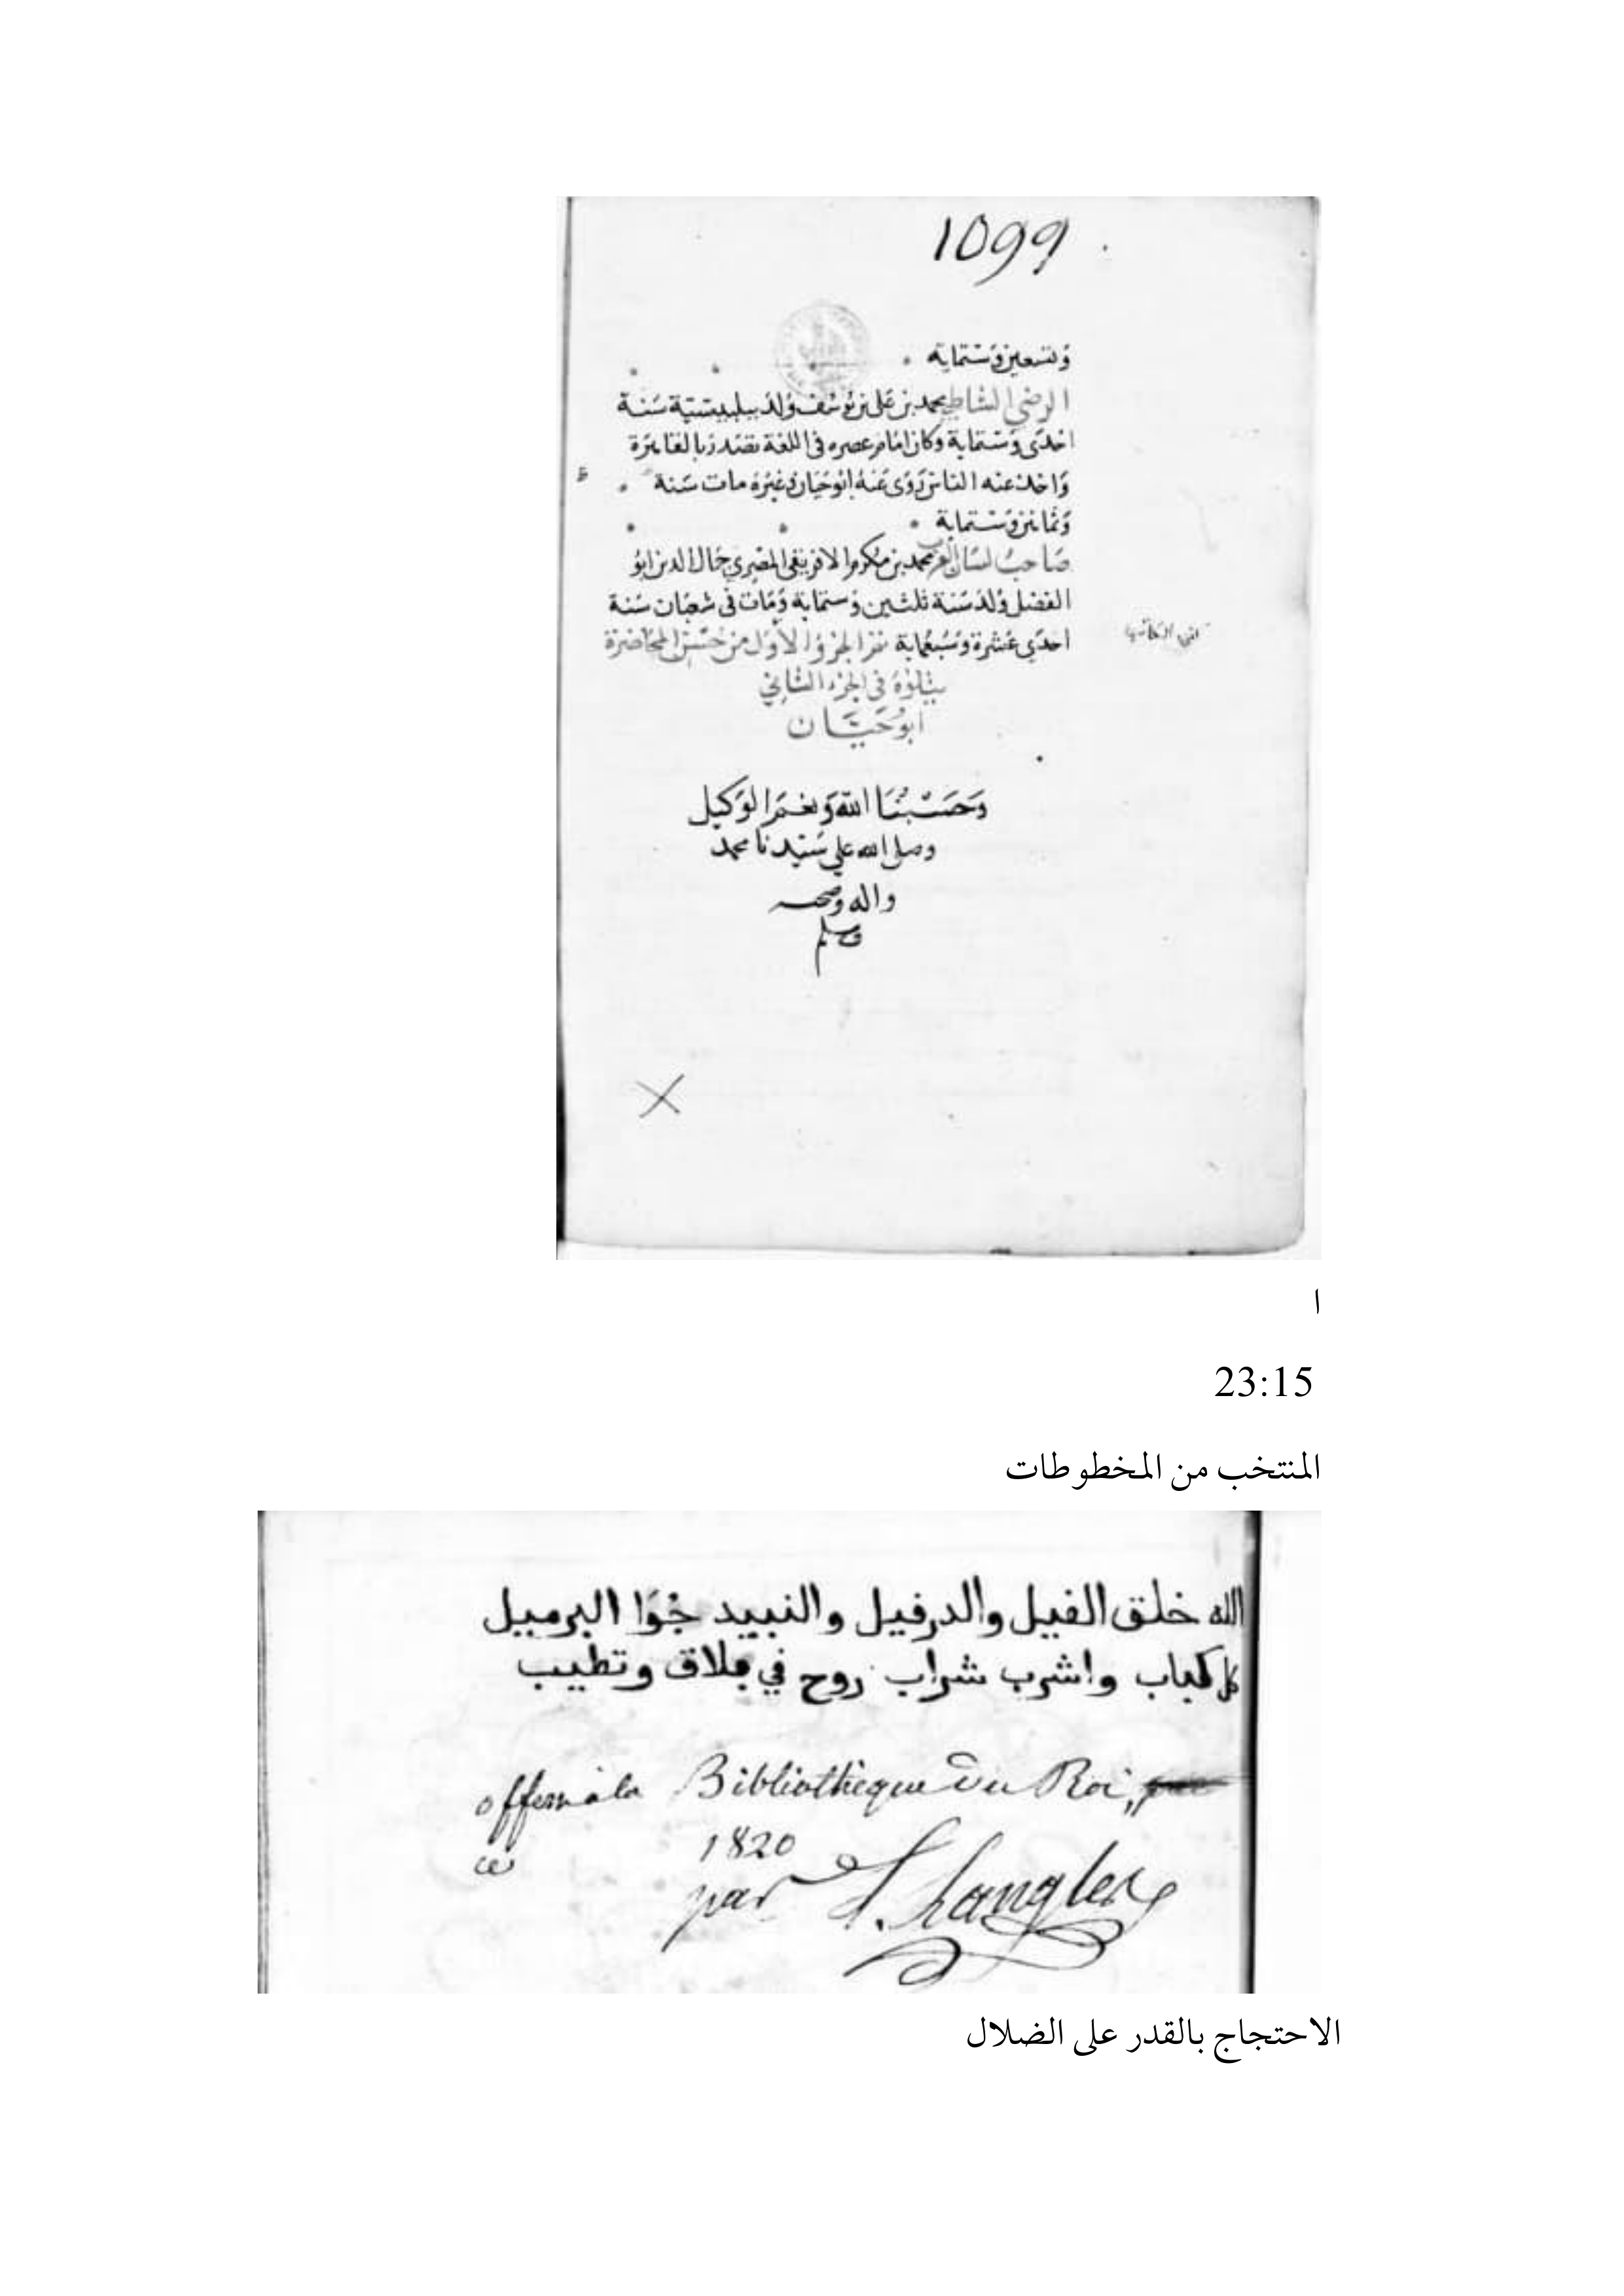 1099
وتسعين وستماية
الرضي الشاطبي محمد بن علي بن يوسف ولد ببلبيسية سنة
احدى وستماية وكان امام عصره في اللغة تصدر بالقاهرة
واخذ عنه الناس روى عنه ابو حيان وغيره مات سنة
وثمانين وستماية
صاحب لسان العرب محمد بن مكرم الافريقي المصري جمال الدين ابو
الفضل ولد سنة ثلثين وستماية ومات في شعبان سنة
احدي عشرة وسبعماية نجز الجزؤ الاول من حسن المحاضرة
يتلوه في الجزء الثاني
ابو حيان
وحسبنا الله ونعم الوكيل
وصلى الله علي سيدنا محمد
واله وصحبه
وسلم
ا
23:15
المنتخب من المخطوطات
الله خلق الفيل والدرفيل والنبيد جوا البرميل
كل كباب واشرب شراب روح في بلاق وتطيب
offert à la Bibliothèque du Roi, par
ce 1820
par L. Langlès
الاحتجاج بالقدر على الضلال